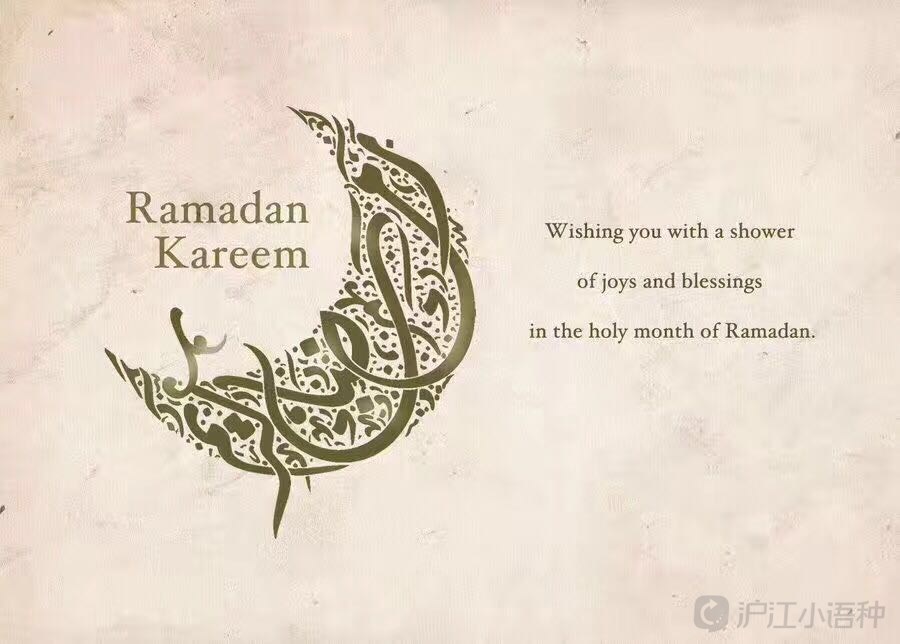 Ramadan
Kareem
Wishing you with a shower
of joys and blessings
in the holy month of Ramadan.
沪江小语种